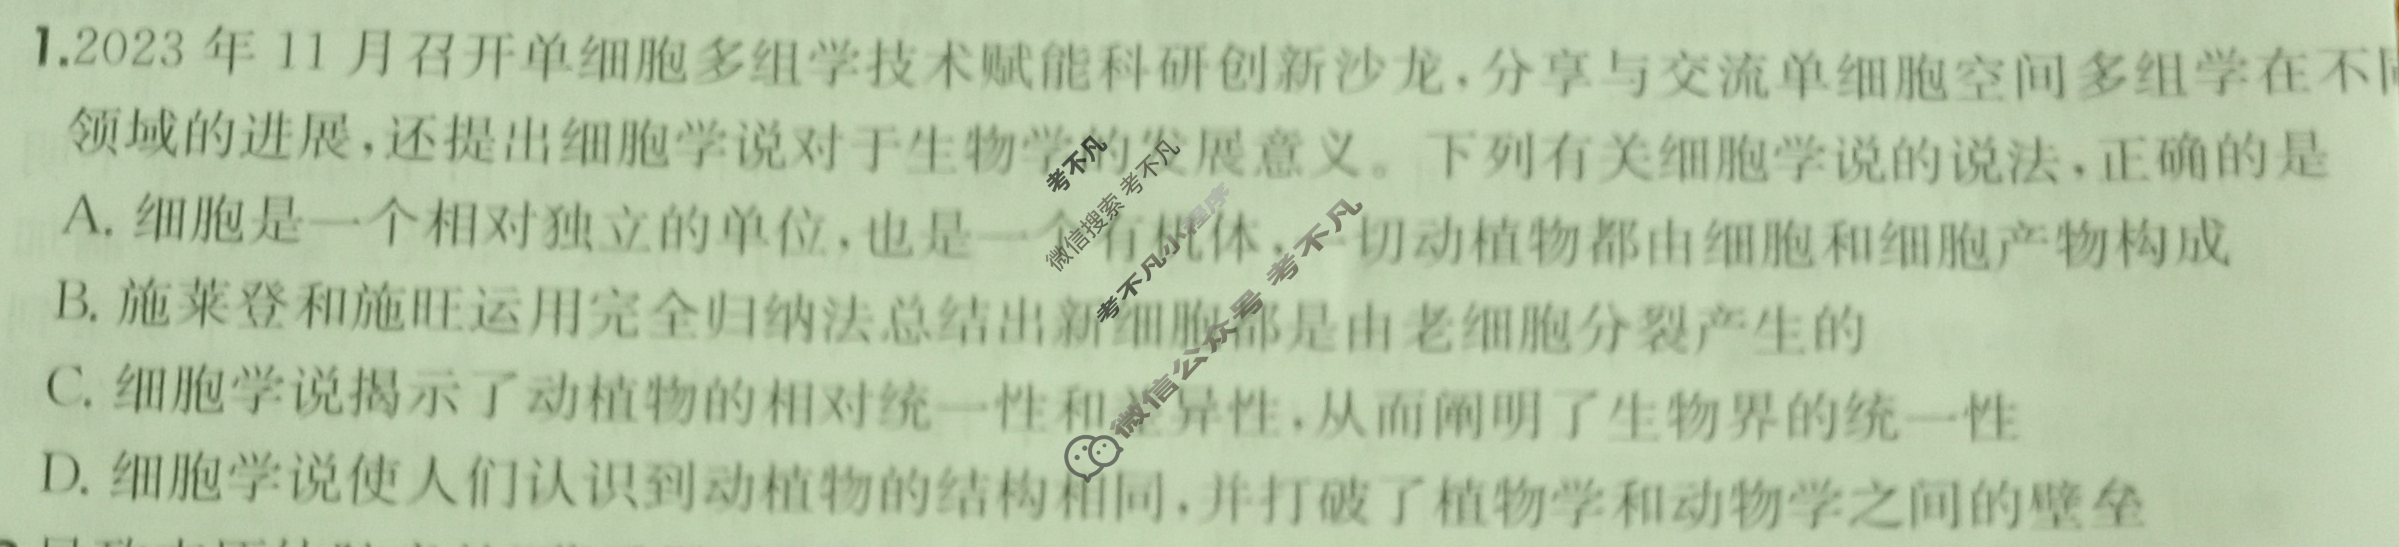 1.2023年11月召开单细胞多组学技术赋能科研创新沙龙,分享与交流单细胞空间多组学在不
领域的进展,还提出细胞学说对于生物学的发展意义。下列有关细胞学说的说法,正确的是
A. 细胞是一个相对独立的单位,也是一个有机体,一切动植物都由细胞和细胞产物构成
B. 施莱登和施旺运用完全归纳法总结出新细胞都是由老细胞分裂产生的
C. 细胞学说揭示了动植物的相对统一性和差异性,从而阐明了生物界的统一性
D. 细胞学说使人们认识到动植物的结构相同,并打破了植物学和动物学之间的壁垒
考不凡
微信搜索 考不凡
考不凡小程序
微信公众号 考不凡